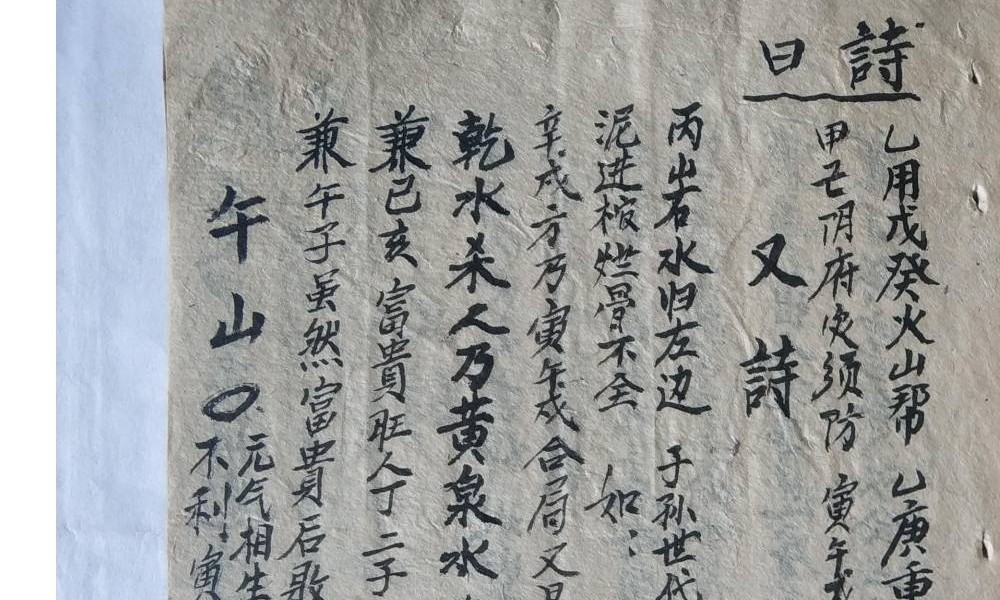 詩曰
乙用戊癸火山帮 乙庚重
甲 阴府 须防 寅午戌
又詩
丙 右水归左边 子孙世代
泥进棺烂骨不全 如：
辛戌方乃寅午戌合局又
乾水杀人乃黄泉水
兼巳亥富貴旺人丁二子
兼午子虽然富貴后败
午山
元气相生
不利 寅